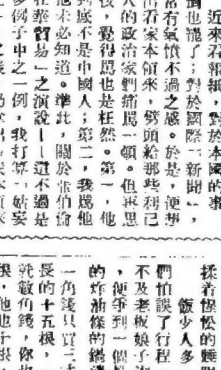 近來看報紙，對於本國的事
倒也罷了；對於國際「新聞」，
常有氣憤不過之感。於是，便想
出看家本領來，劈頭給那些利己
的政治家們痛罵一頓。但再思
後，覺得罵也是枉然。第一，他
到底不是中國人；第二，我罵
他未必知道。準此，關於張伯倫
在華貿易」之演說——這不過是
多例子中之一例，我打算一姑妄
揉着惺忪的睡眼
飯少人多
們怕誤了行程
不及老板娘子
，便爭到一個
的炸油條的鍋
一角錢只買二
長的十五根，
就數角錢，你
很，他也子